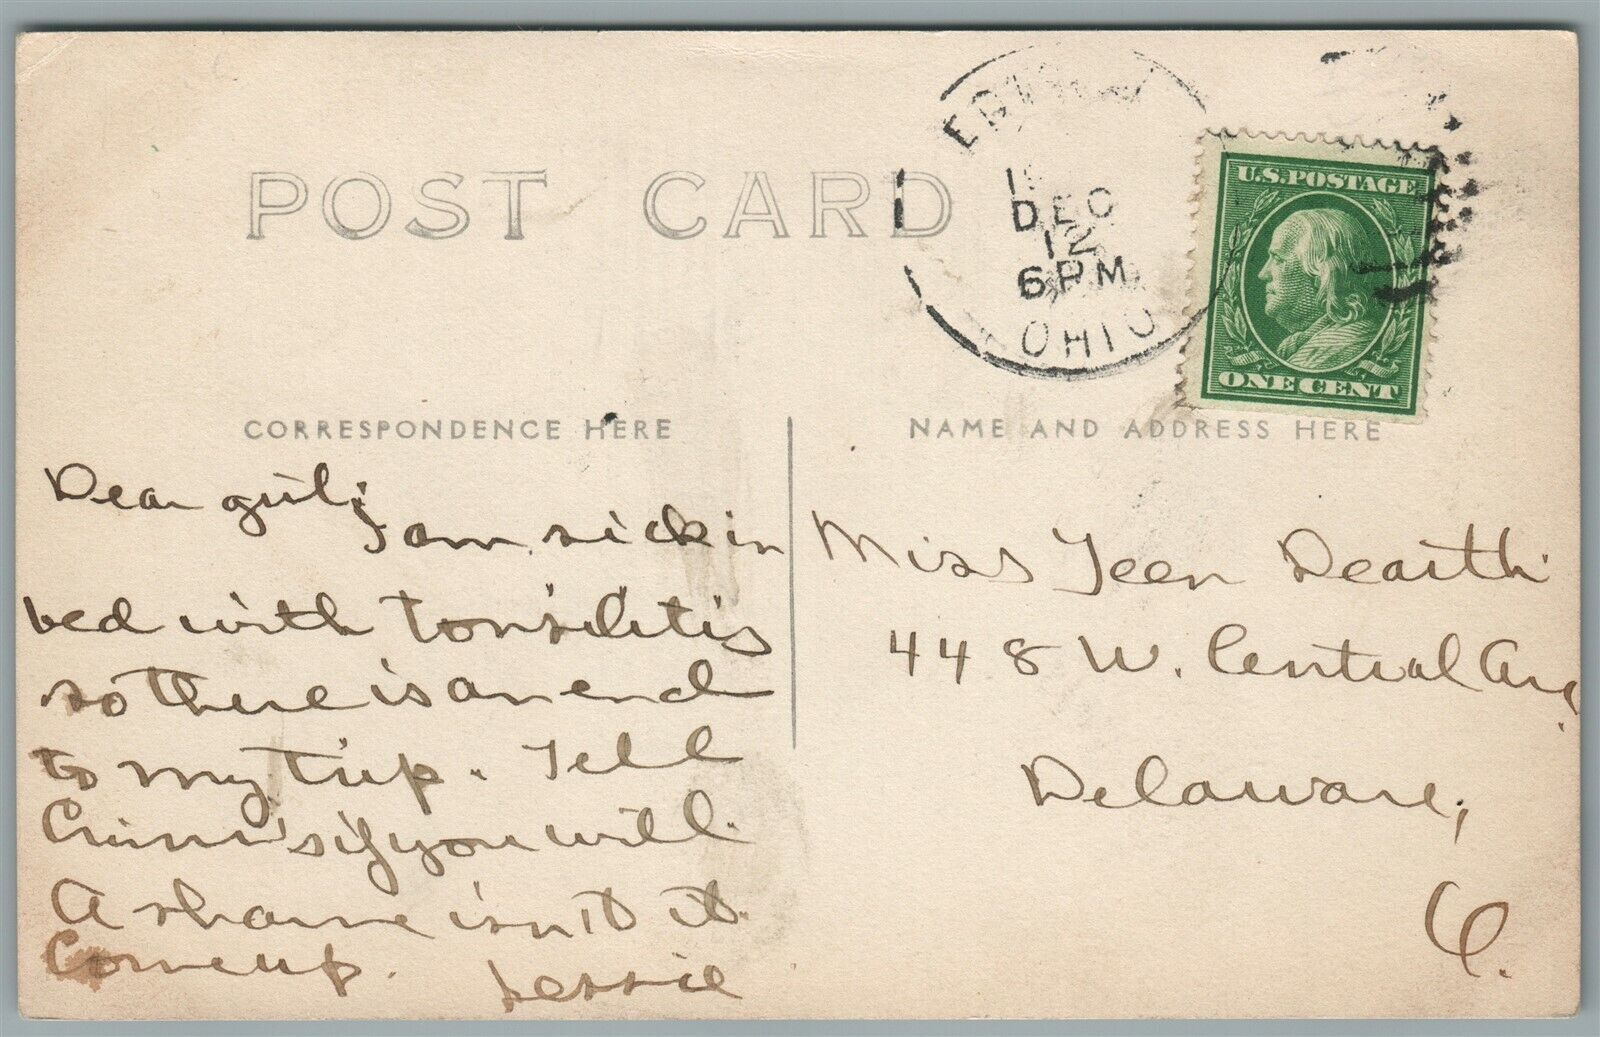 POST CARD
DEC
12
6 PM
OHIO
U.S. POSTAGE
ONE CENT
CORRESPONDENCE HERE
NAME AND ADDRESS HERE
Dear girl;
I am sick in
bed with tonsilitis
so there is an end
to my trip. Tell
if you will.
A shame isn't it.
Come up. Jessie
Miss Teen Dearth
448 W. Central Ave.
Delaware,
O.